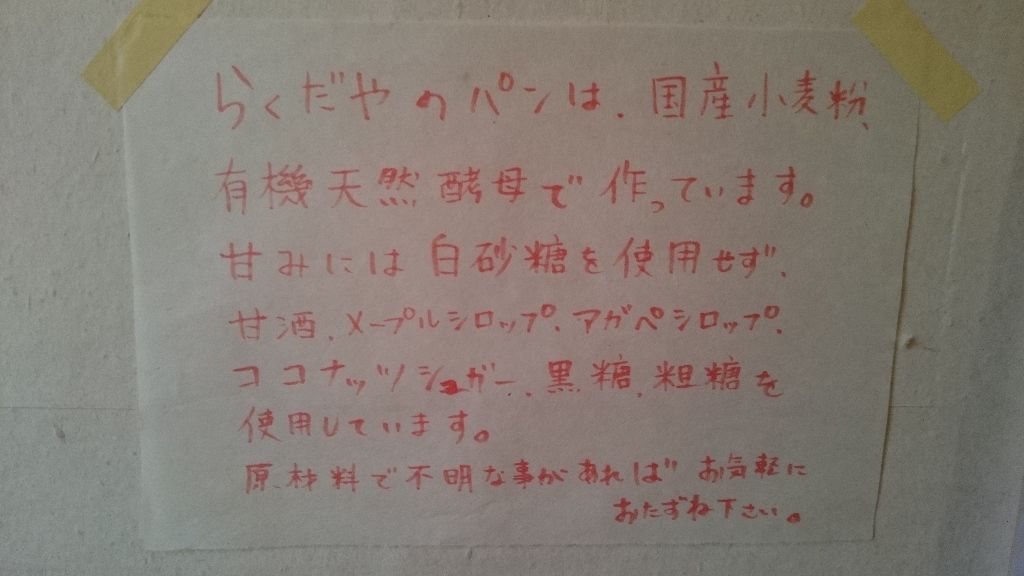 らくだやのパンは、国産小麦粉、
有機天然酵母で作っています。
甘みには白砂糖を使用せず、
甘酒、メープルシロップ、アガペシロップ、
ココナッツシュガー、黒糖、粗糖を
使用しています。
原材料で不明な事があれば お気軽に
おたずね下さい。